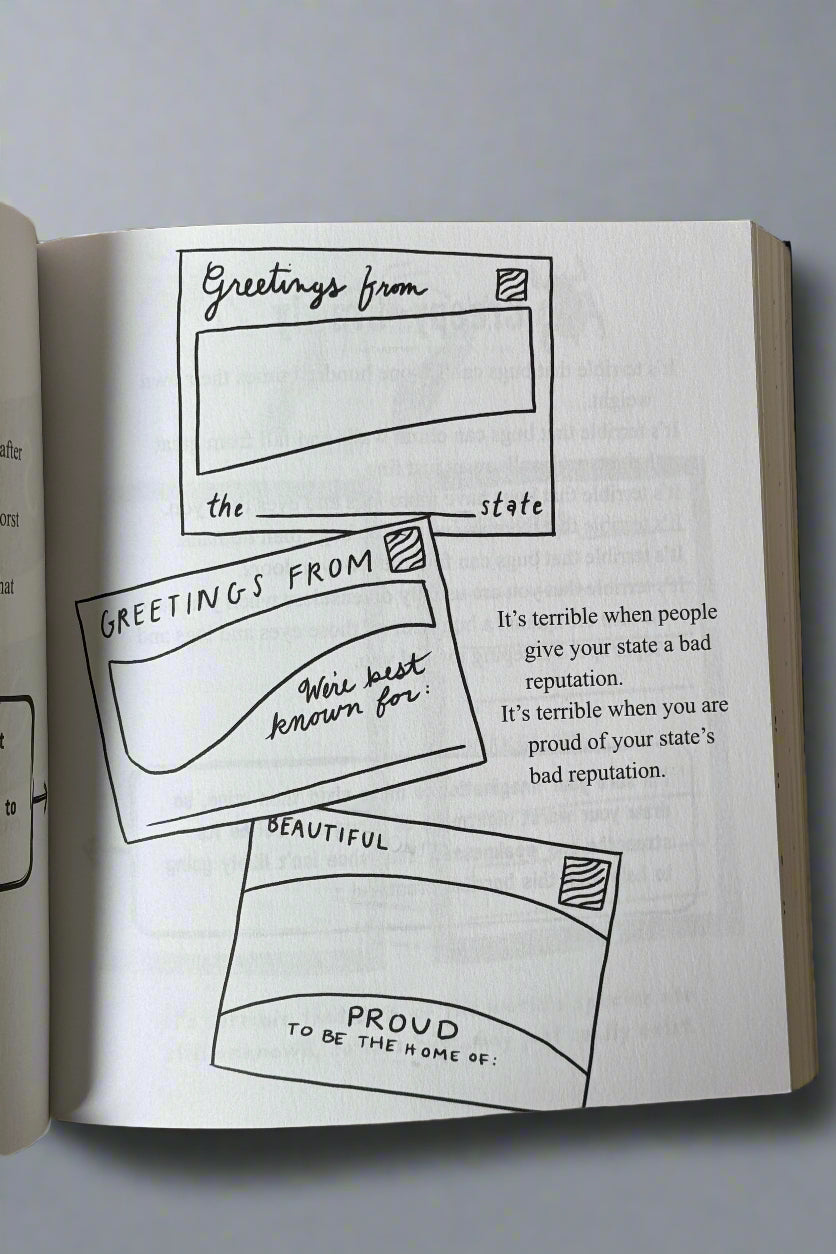 after
orst
hat
t
to
Greetings from
the ________ state
GREETINGS FROM
We're best
known for:
BEAUTIFUL
PROUD
TO BE THE HOME OF:
It's terrible when people
give your state a bad
reputation.
It's terrible when you are
proud of your state's
bad reputation.